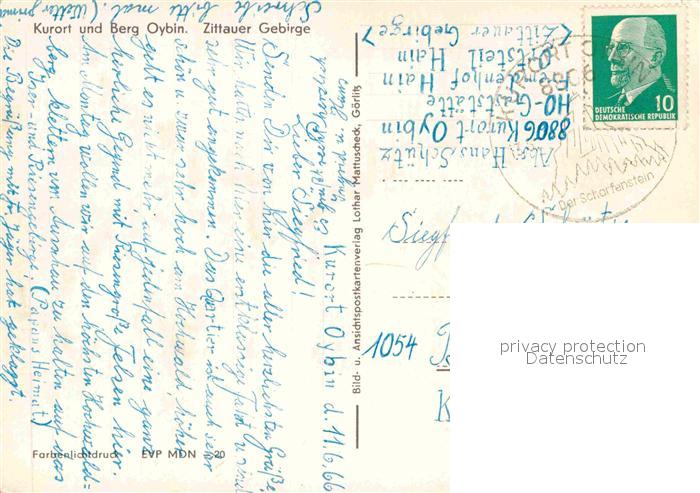 Kurort und Berg Oybin. Zittauer Gebirge
Schreibe bitte mal. (Wetter prima
Kurort Oybin d. 11.6.66
Lieber Siegfried!
Senden Dir von hier die aller herzlichsten Grüße.
Wir hatten nach hier eine erstklassige Fahrt u. sind
sehr gut angekommen. Das Quartier ist auch sehr
schön u. Fam. sehr hoch am Hochwald höher
geht es nicht mehr, auf jedenfall eine ganz
herliche Gegend mit riesengroße Felsen hier.
Am Montag wollen wir auf den höchsten Hochwald=
berg klettern um Ausschau zu halten auf das
Iser- und Riesengebirge. (Papans Heimat)
Die Begrüßung mit Jäger hat geklappt.
Farbenlichtdruck EVP MDN -.20
Bild- u. Ansichtspostkartenverlag Lothar Mattuscheck, Görlitz
Abs. Hans Schütz
8806 Kurort Oybin
HO-Gaststätte
Fremdenhof Hain
Ortsteil Hain
<Zittauer Gebirge>
DEUTSCHE
DEMOKRATISCHE REPUBLIK
10
8806
Der Scharfenstein
Siegf
1054
privacy protection
Datenschutz